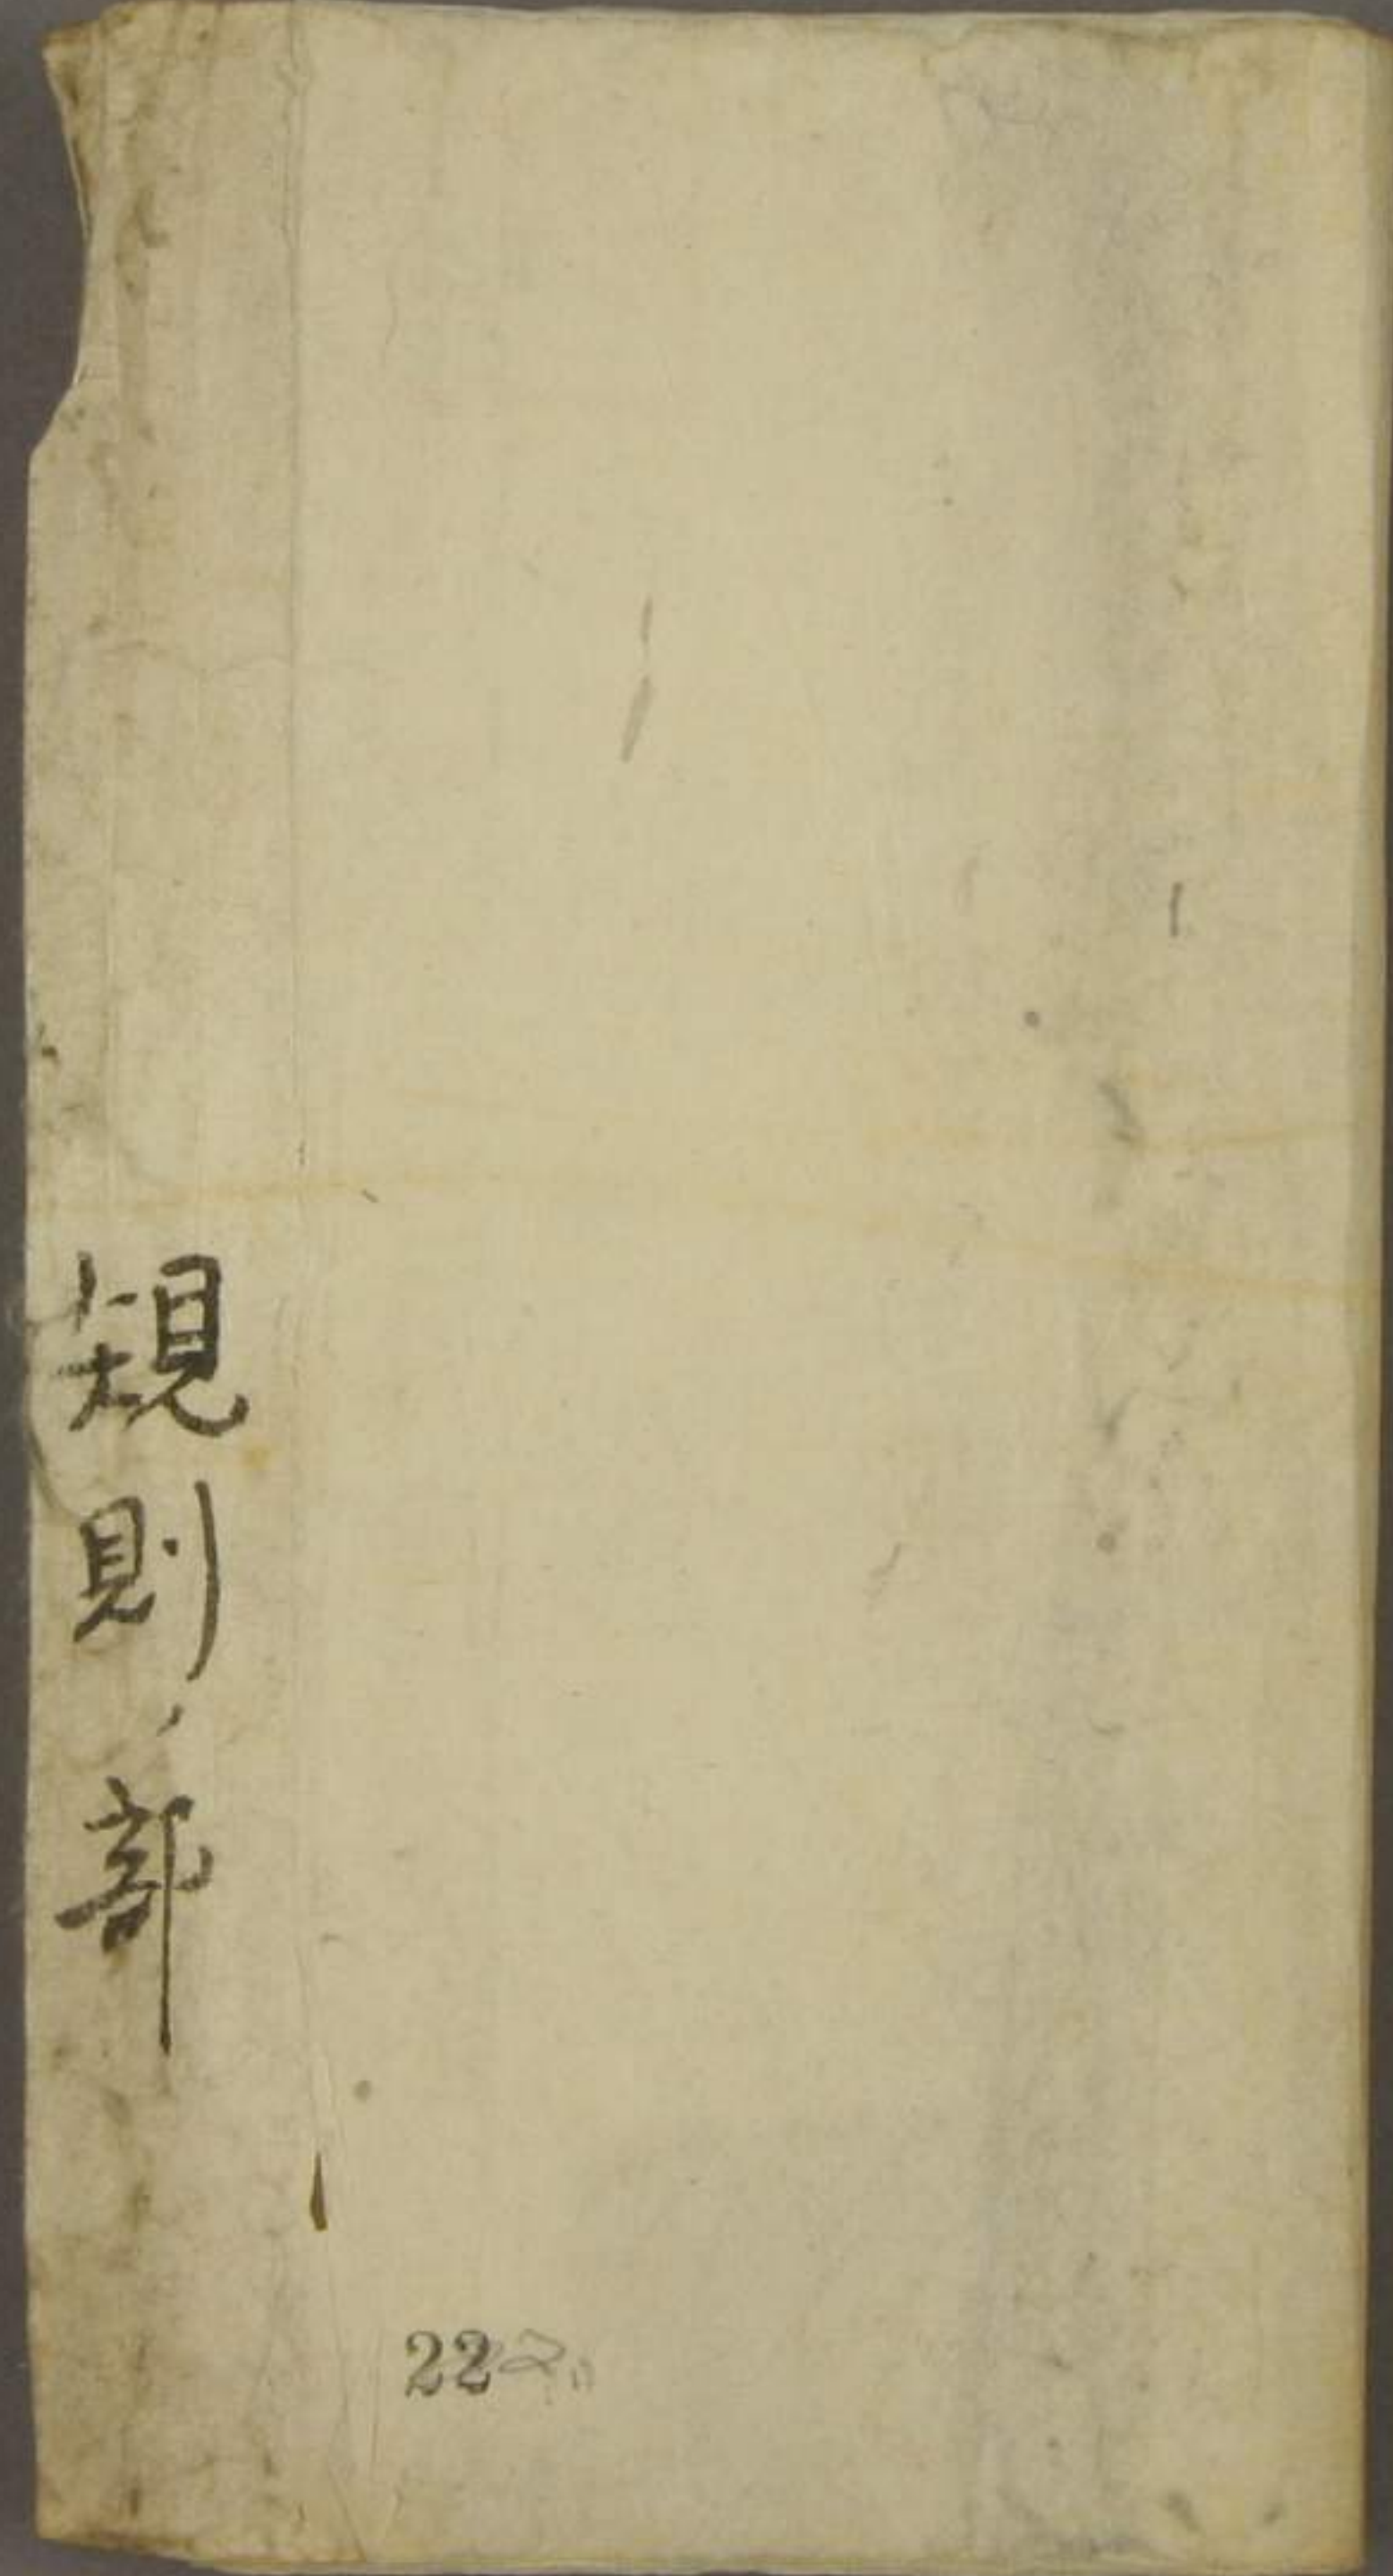 規則ノ部
22